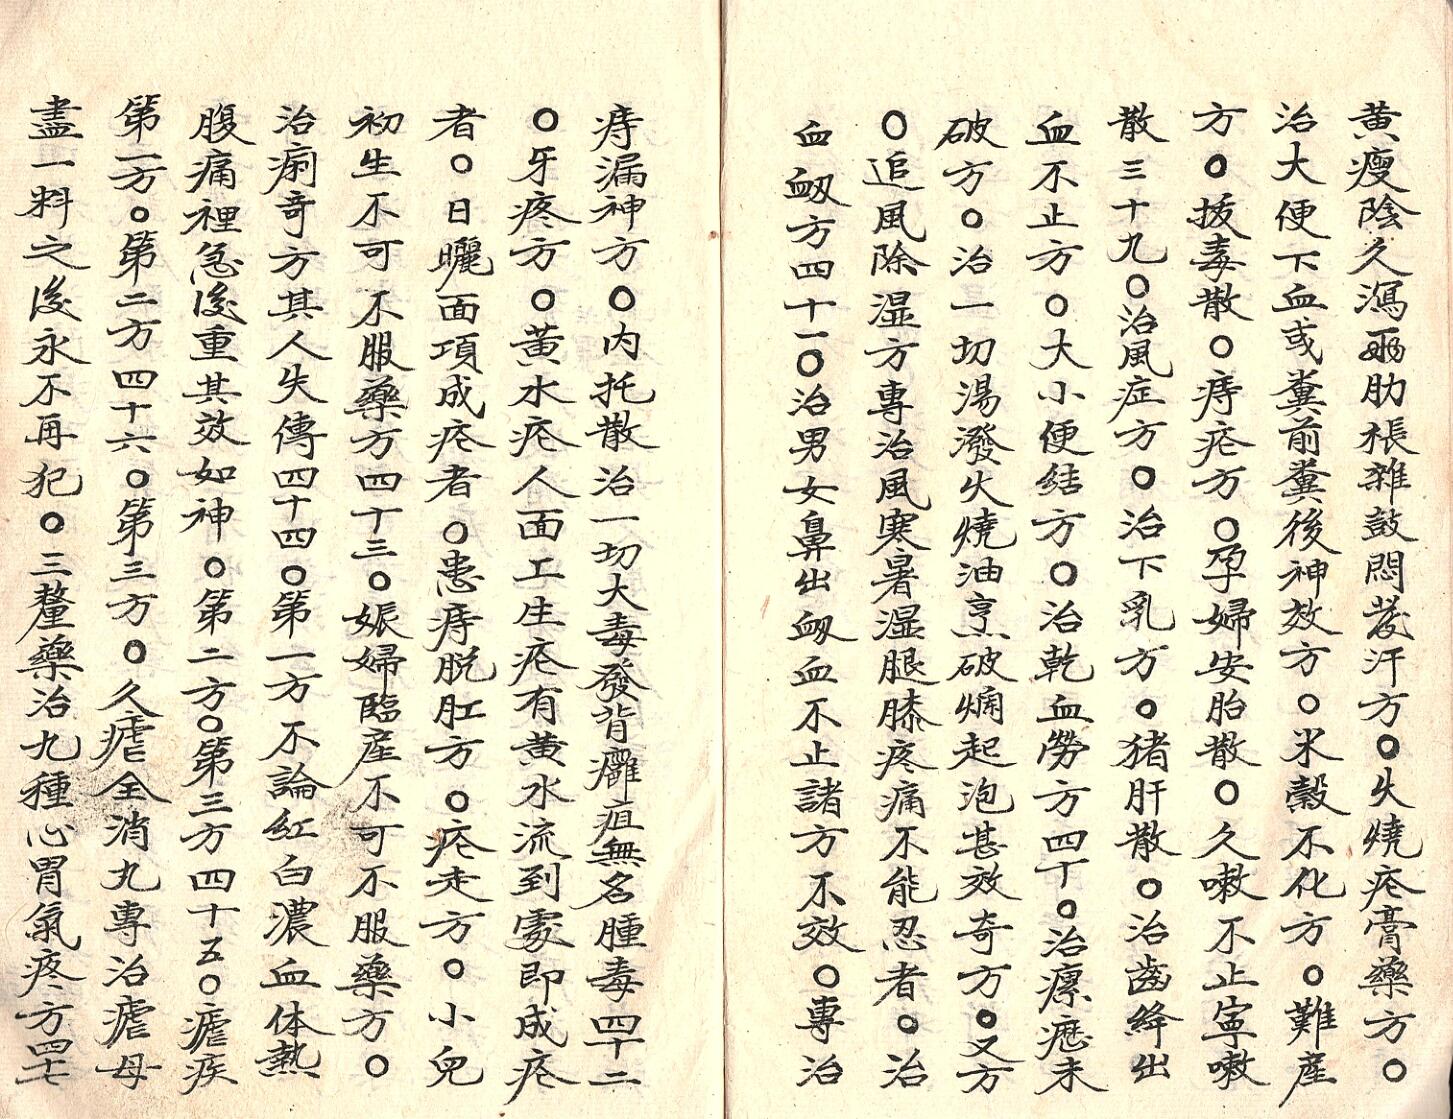 黄瘦陰久瀉兩肋脹雜鼓悶發汗方○火燒疮膏藥方○
治大便下血或糞前糞後神效方○米穀不化方○難產
方○拔毒散○痔疮方○孕婦安胎散○久嗽不止寍嗽
散三十九○治風症方○治下乳方○猪肝散○治齒縫出
血不止方○大小便結方○治乾血勞方四十○治瘰癧未
破方○治一切湯潑火燒油烹破爛起泡甚效奇方○又方
○追風除湿方專治風寒暑湿腿膝疼痛不能忍者○治
血衂方四十一○治男女鼻出衂血不止諸方不效○專治
痔漏神方○内托散治一切大毒發背癰疽無名腫毒四十二
○牙疼方○黃水疮人面工生疮有黄水流到處即成疮
者○日曬面項成疮者○患痔脱肛方○疮走方○小兒
初生不可不服藥方四十三○娠婦臨產不可不服藥方○
治痢奇方其人失傳四十四○第一方不論紅白濃血体熱
腹痛裡急後重其效如神○第二方○第三方四十五○瘧疾
第一方○第二方四十六○第三方○久瘧全消丸專治瘧母
盡一料之後永不再犯○三釐藥治九種心胃氣疼方四十七